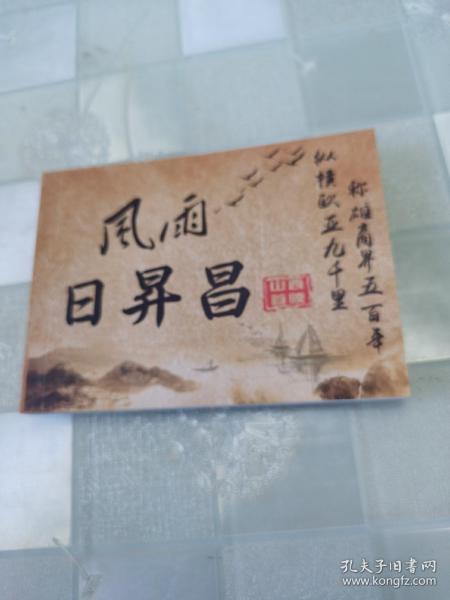 風雨
日昇昌
称雄商界五百年
纵横欧亚九千里
孔夫子旧书网
www.kongfz.com